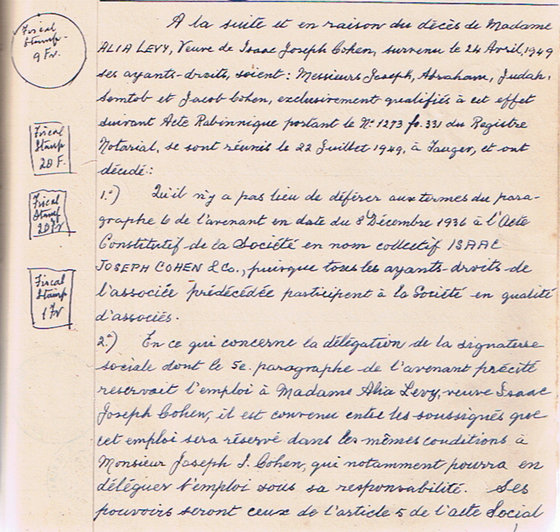 Fiscal
Stamp
9 Fr.
Fiscal
Stamp
20 F.
Fiscal
Stamp
20 Fr
Fiscal
Stamp
1 Fr
A la suite et en raison du décès de Madame
ALIA LEVY, Veuve de Isaac Joseph Cohen, survenu le 24 Avril, 1949
ses ayants-droits, soient: Messieurs Joseph, Abraham, Judah,
Semtob et Jacob Cohen, exclusivement qualifiés à cet effet
suivant Acte Rabinnique portant le No 1273 fo. 331 du Registre
Notarial, se sont réunis le 22 Juillet 1949, à Tanger, et ont
décidé:
1.°) Qu'il n'y a pas lieu de déférer aux termes du para-
graphe 6 de l'avenant en date du 8 Décembre 1936 à l'Acte
Constitutif de la Société en nom collectif ISAAC
JOSEPH COHEN & Co., puisque tous les ayants-droits de
l'associée prédécédée participent à la Société en qualité
d'associés.
2.°) En ce qui concerne la délégation de la signature
sociale dont le 5e. paragraphe de l'avenant précité
reservait l'emploi à Madame Alia Levy, veuve Isaac
Joseph Cohen, il est convenu entre les soussignés que
cet emploi sera réservé dans les mêmes conditions à
Monsieur Joseph I. Cohen, qui notamment pourra en
déléguer l'emploi sous sa responsabilité. Ses
pouvoirs seront ceux de l'article 5 de l'acte Social